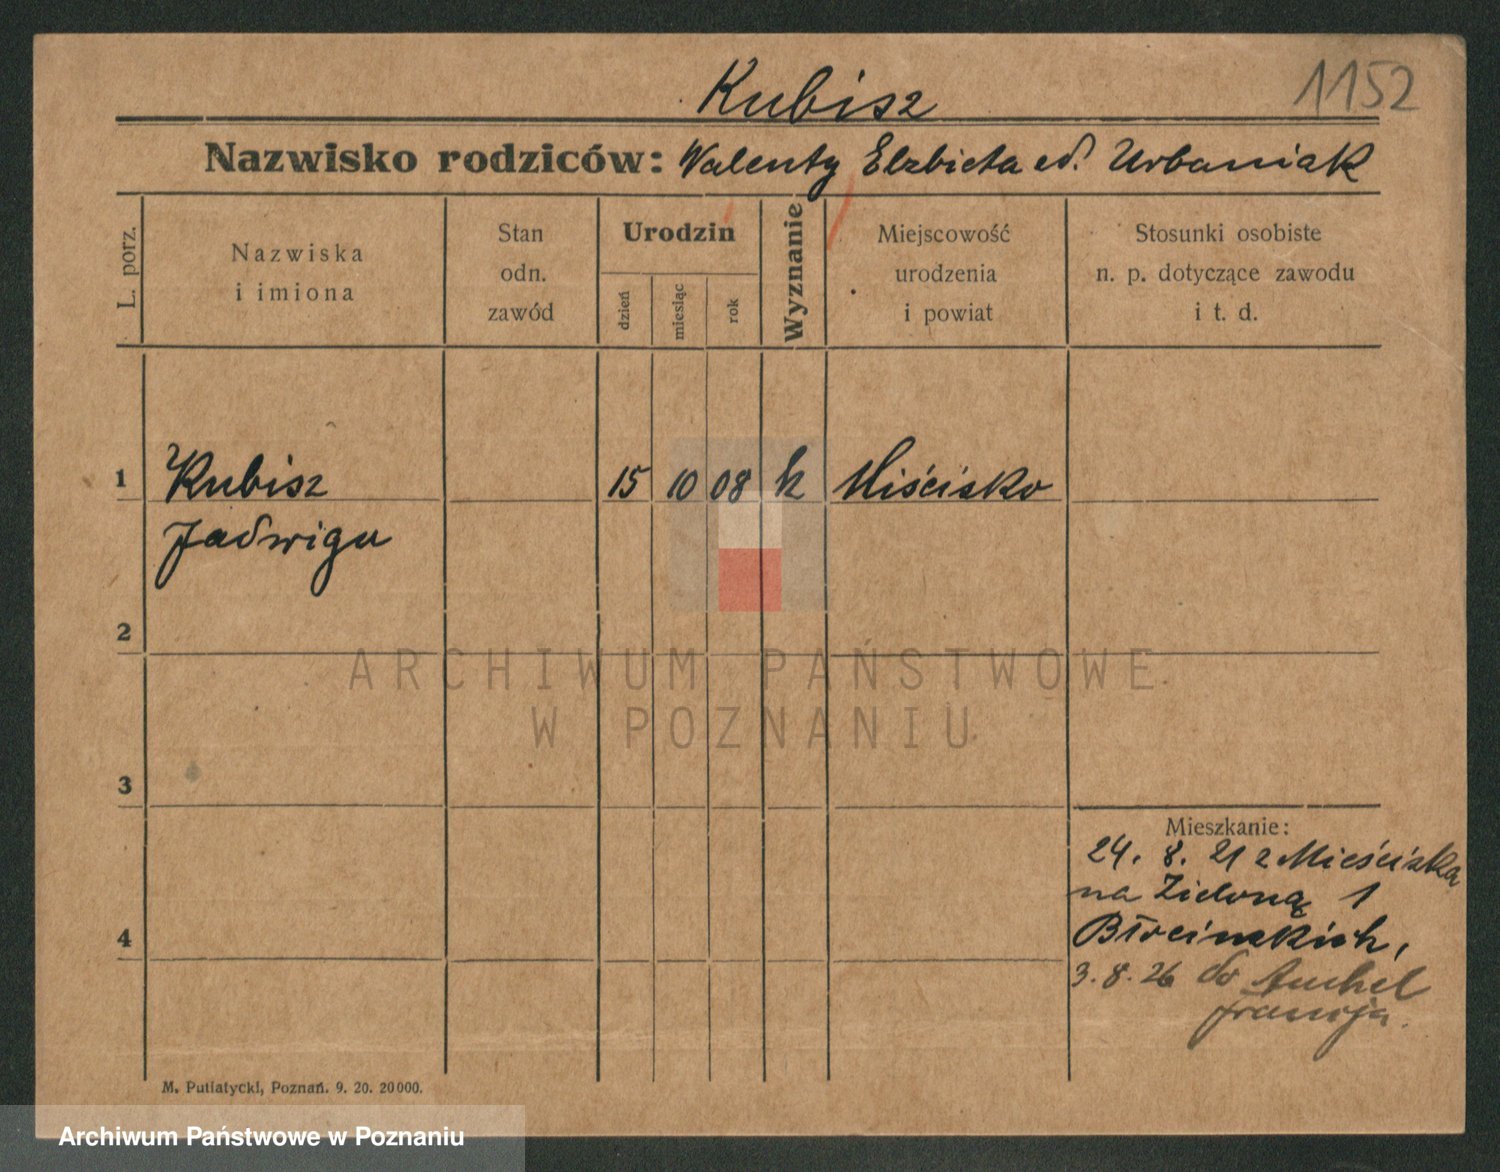 1152
Kubisz
Nazwisko rodziców: Walenty Elzbieta ed. Urbaniak
L. porz.
Nazwiska
i imiona
Stan
odn.
zawód
Urodzin
dzień
miesiąc
rok
Wyznanie
Miejscowość
urodzenia
i powiat
Stosunki osobiste
n. p. dotyczące zawodu
i t. d.
1 Kubisz 15 10 08 k Mieścisko
Jadwiga
2
ARCHIWUM PAŃSTWOWE
W POZNANIU
3
Mieszkanie:
24. 8. 21 z Mieściska
na Zieloną 1
4
3. 8. 26 do Auchel
Francja.
M. Putiatycki, Poznań. 9. 20. 20000.
Archiwum Państwowe w Poznaniu